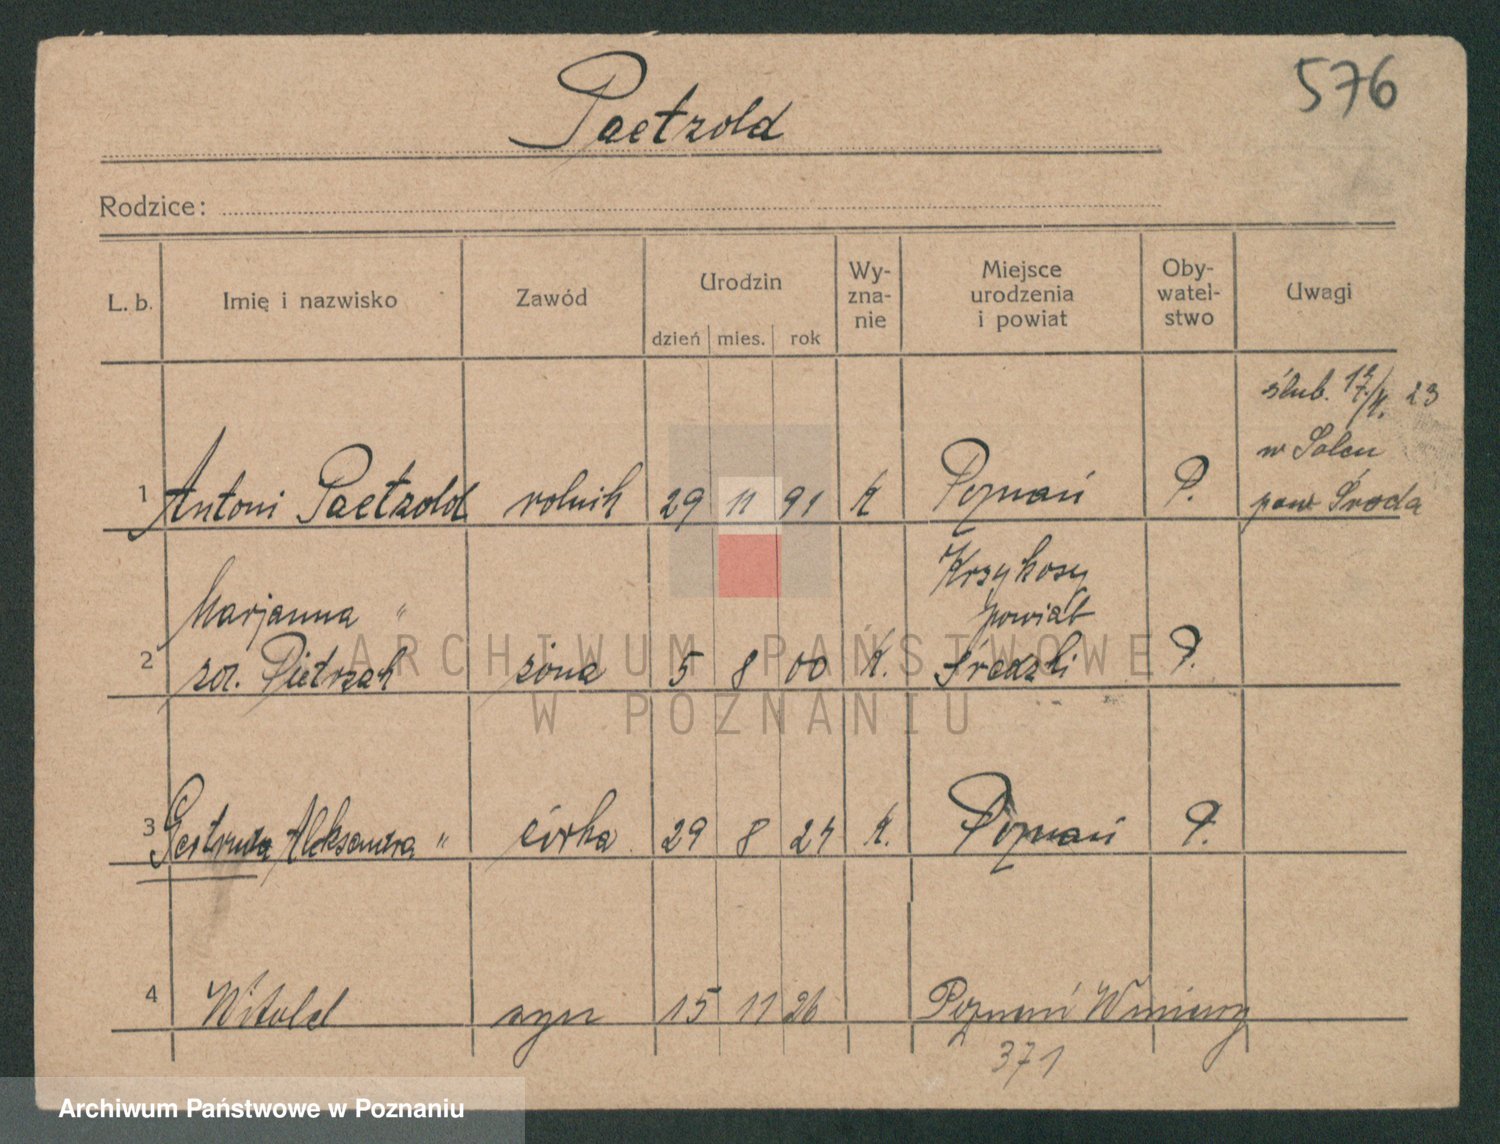 576
Paetzold
Rodzice:
L. b. Imię i nazwisko Zawód Urodzin dzień mies. rok Wy-zna-nie Miejsce urodzenia i powiat Oby-watel-stwo Uwagi
ślub. 23
w Solcu
pow Środa
1 Antoni Paetzold rolnik 29 11 91 K Poznań P.
Marjanna " Krzykosy
powiat
2 zd. Pietrzak żona 5 8 00 K. Średzki P.
3 Gertruda Aleksandra " córka 29 8 24 K. Poznań P.
4 Witold syn 15 11 26 Poznań Winiary
371
ARCHIWUM PAŃSTWOWE
W POZNANIU
Archiwum Państwowe w Poznaniu